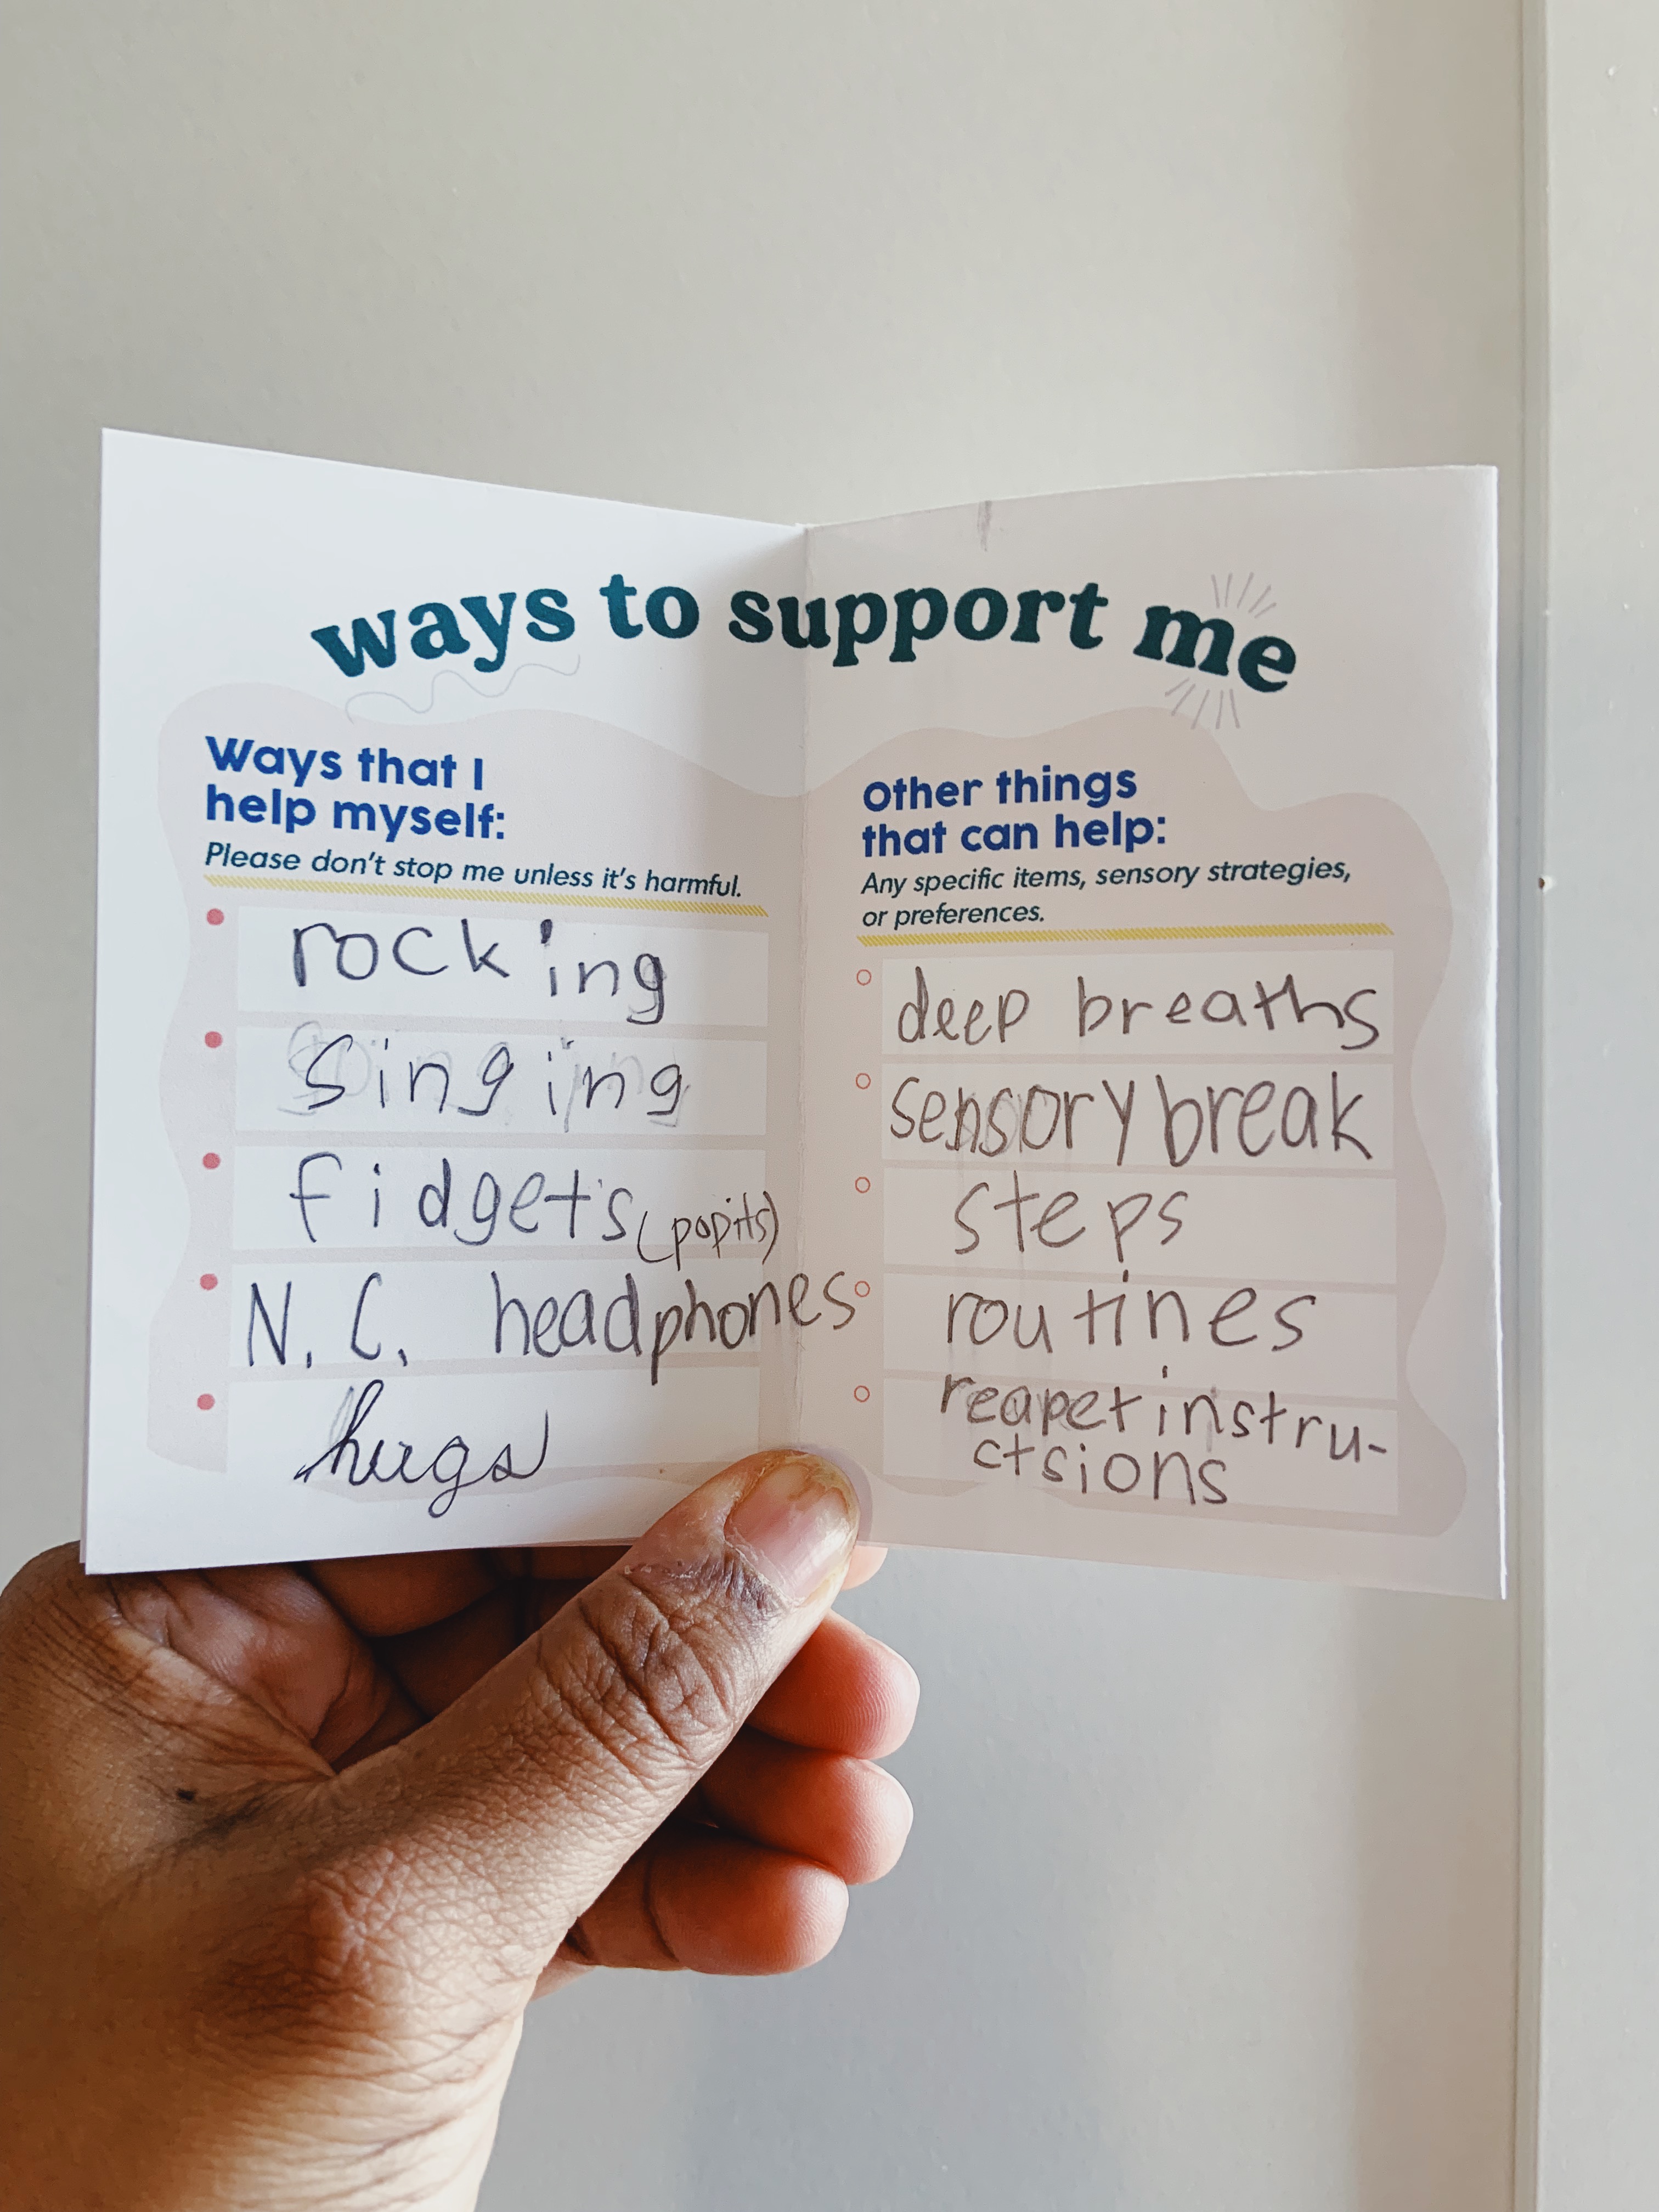 ways to support me
Ways that I
help myself:
Please don't stop me unless it's harmful.
rocking
singing
fidgets (popits)
N.C. headphones
hugs
Other things
that can help:
Any specific items, sensory strategies,
or preferences.
deep breaths
sensory break
steps
routines
reapet instru-
ctsions